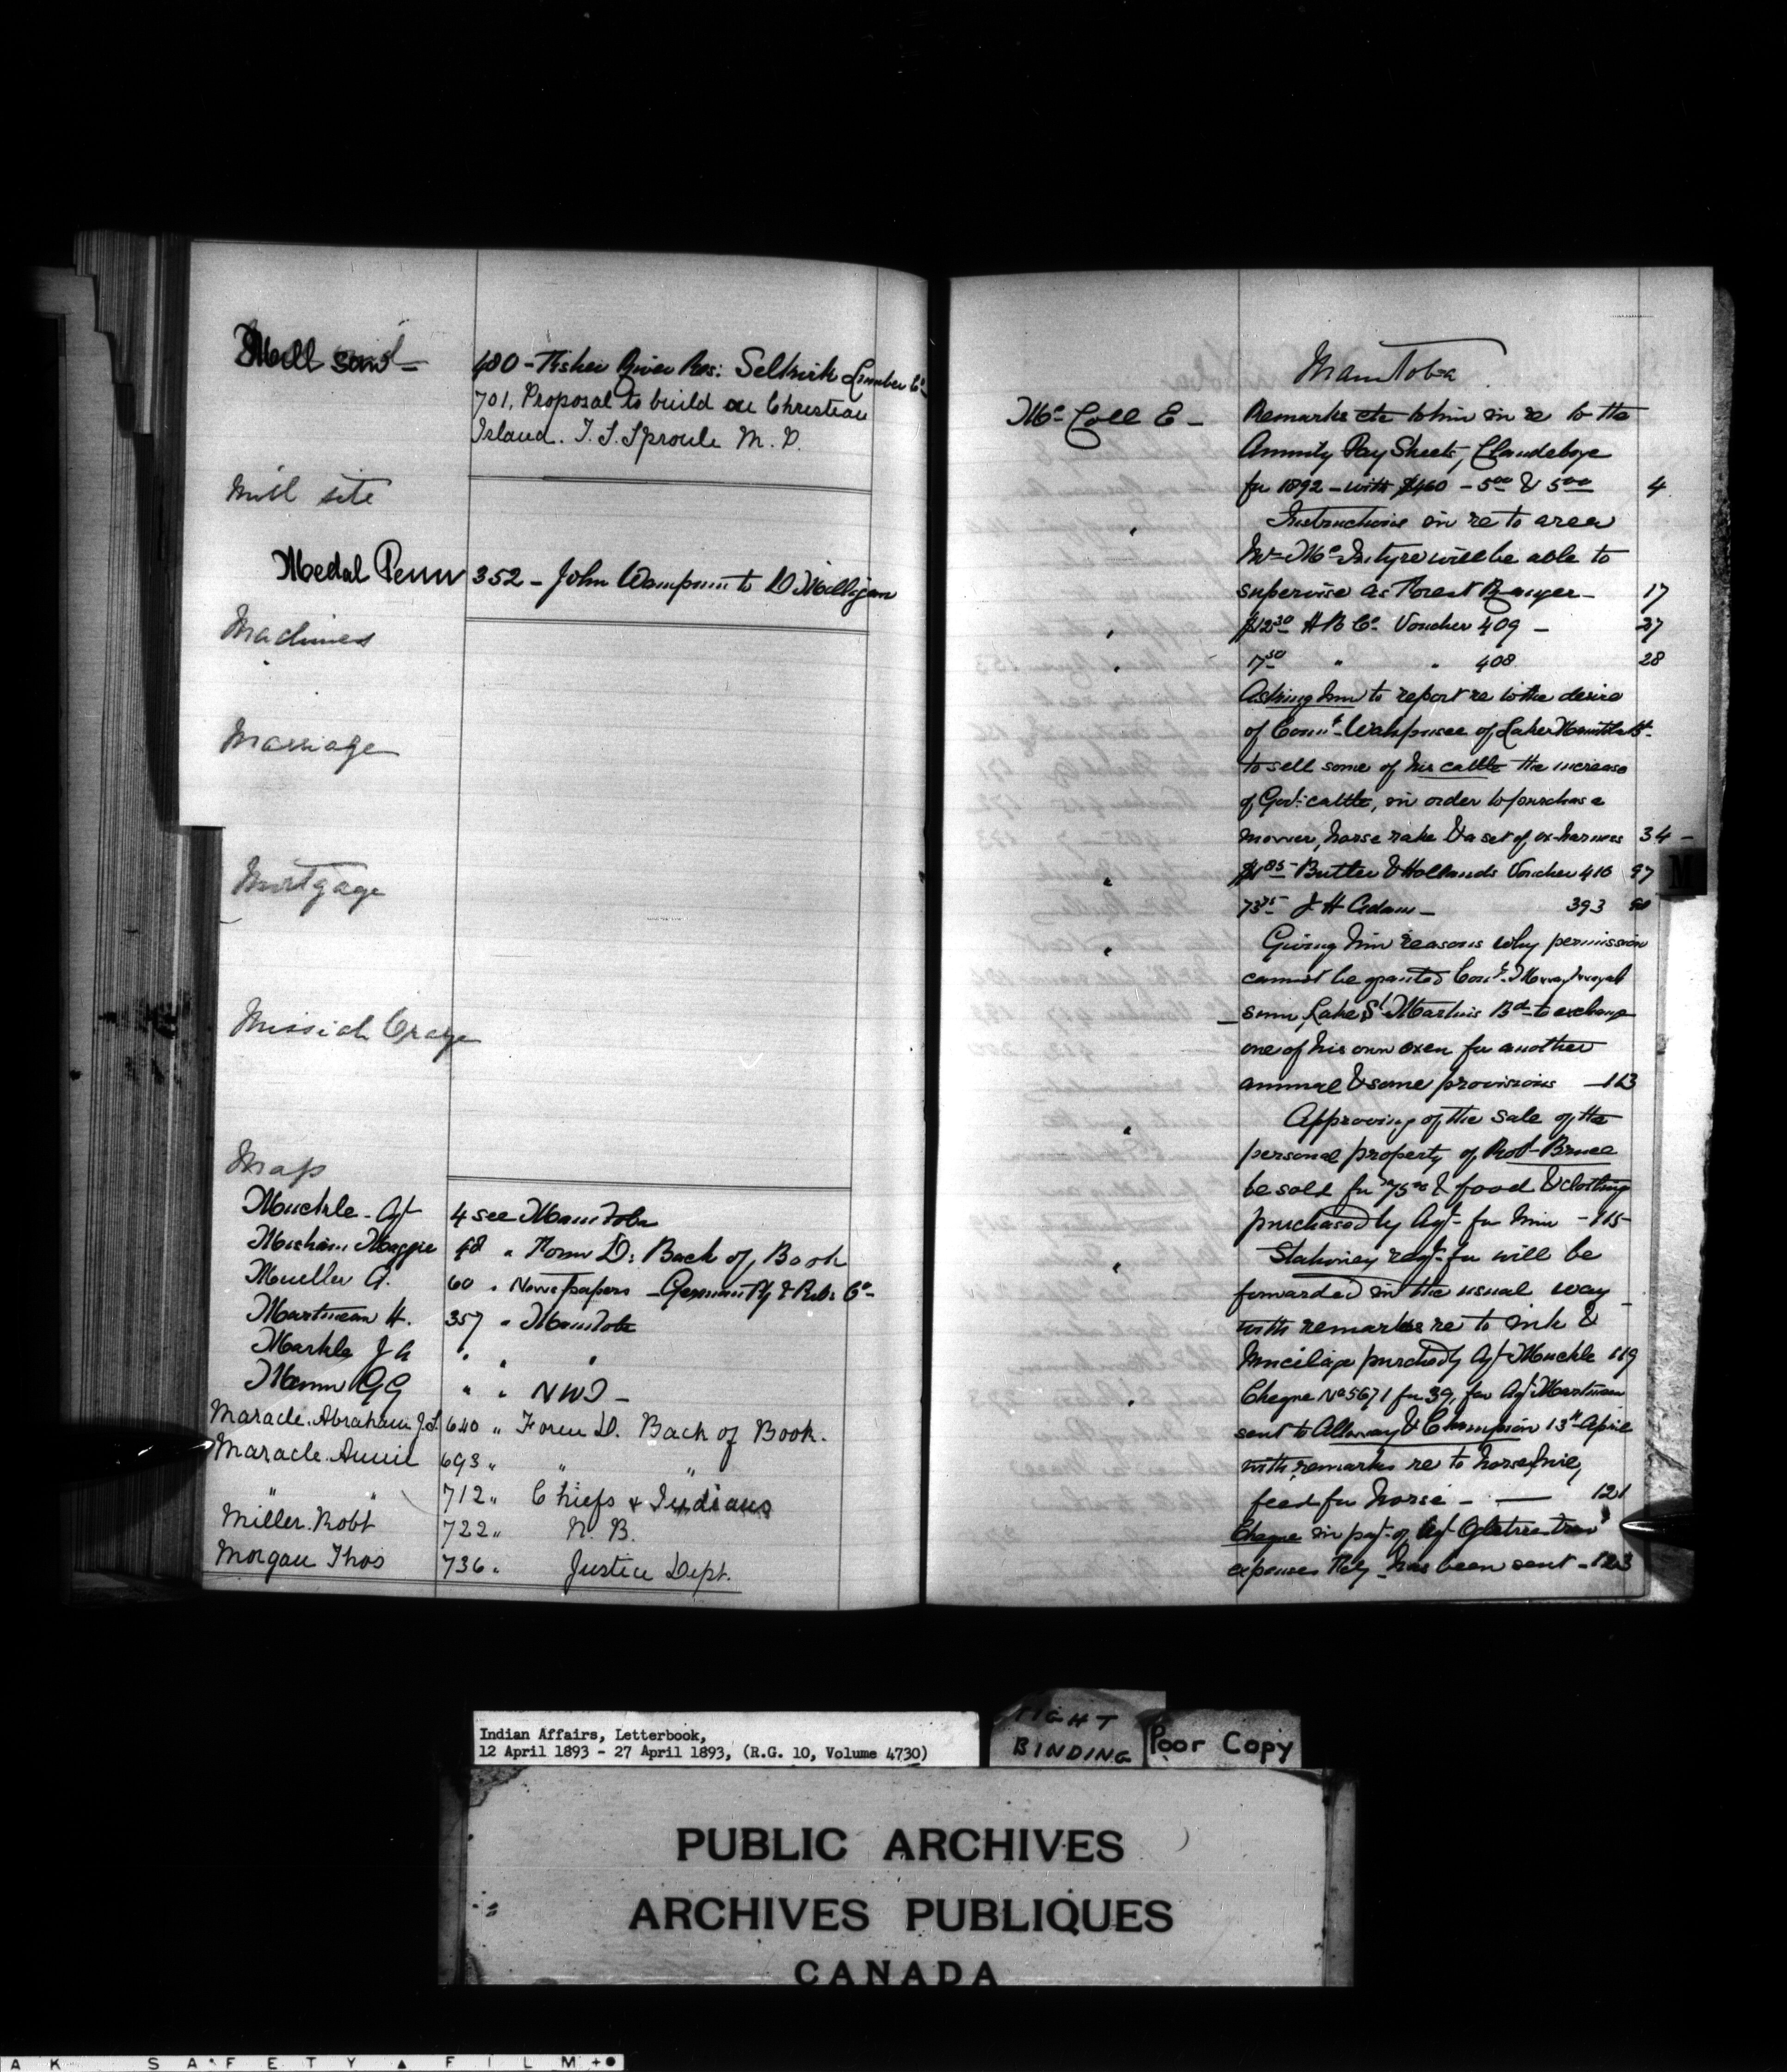 Mill saw -
480 - Fisher River Res: Selkirk Lumber Co
701, Proposal to build on Christian
Island. T. S. Sproule M. P.
Mill site
Medal Penn 352 - John Wampum to D Milligan
Machines
Marriage
Mortgage
Missiah Craze
Map
Muckle - Agt 4 see Manitoba
Maggie 48 " Form D: Back of Book
Mueller A. 60 " Newspapers - German Ptg & Pub: Co -
Martineau H. 357 " Manitoba
Markle J A " " "
Mann G G " " N W T -
Maracle. Abraham J. S. 640 " Form D. Back of Book.
Maracle. Annie 693 " " "
" " 712 " Chiefs & Indians
Miller. Robt 722 " N. B.
Morgan Thos 736 " Justice Dept.
Manitoba
Mc Coll E - Remarks etc to him in re to the
Annuity Pay Sheets, Clandeboye
for 1892 - with $460 - 5.00 & 5.00 4
" Instructions in re to area
Mr Mc Intyre will be able to
supervise as Forest Ranger - 17
" $12.30 H B Co Voucher 409 - 27
" 17.50 " " 408 28
Asking him to report re to the desire
of of Lake Manitoba Bd -
to sell some of his cattle the increase
of Govt: cattle, in order to purchase a
mower, horse rake & a set of ox-harness 34 -
" $1.85 - Butler & Hollands Voucher 416 97
73.75 J H Adam - 393
" Giving him reasons why permission
cannot be granted
Lake St Martins Bd - to exchange
one of his own oxen for another
animal & some provisions - 113
" Approving of the sale of the
personal property of Robt - Bruce
be sold for 75.00 & food & clothing
purchased by Agt - for him - 115
" Stationery reqd - for will be
forwarded in the usual way -
with remarks re to ink &
Mucilage purchd by Agt - Muckle 119
" Cheque No 5671 for 39, for Agt Martineau
sent to Alloway & Champion 13th April
with remarks re to horse hire,
feed for horse - — 121
Cheque in payt - of Agt - Ogletree
expenses has been sent - 123
M
Indian Affairs, Letterbook,
12 April 1893 - 27 April 1893, (R.G. 10, Volume 4730)
TIGHT
BINDING
Poor Copy
PUBLIC ARCHIVES
ARCHIVES PUBLIQUES
CANADA
A K S A F E T Y ▲ F I L M